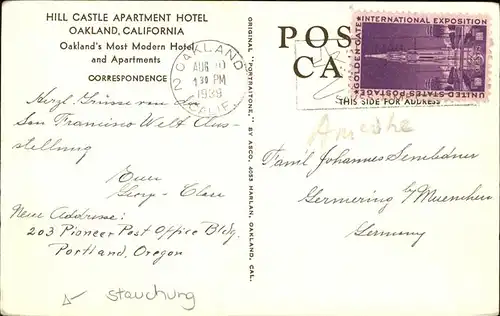 HILL CASTLE APARTMENT HOTEL
OAKLAND, CALIFORNIA
Oakland's Most Modern Hotel
and Apartments
CORRESPONDENCE
Herzl. Grüsse von der
San Francisco Welt Aus-
stellung
Euer
Neue Addresse:
203 Pioneer Post Office Bldg.
Portland, Oregon
Stauchung
ORIGINAL "PORTRAITONE," BY ASCO, 4053 HARLAN, OAKLAND, CAL.
OAKLAND
AUG
1 30 PM
1939
CALIF.
2
POS
CA
THIS SIDE FOR ADDRESS
GOLDEN GATE
INTERNATIONAL EXPOSITION
UNITED STATES POSTAGE
Famil Johannes
Germering b/Muenchen
Germany